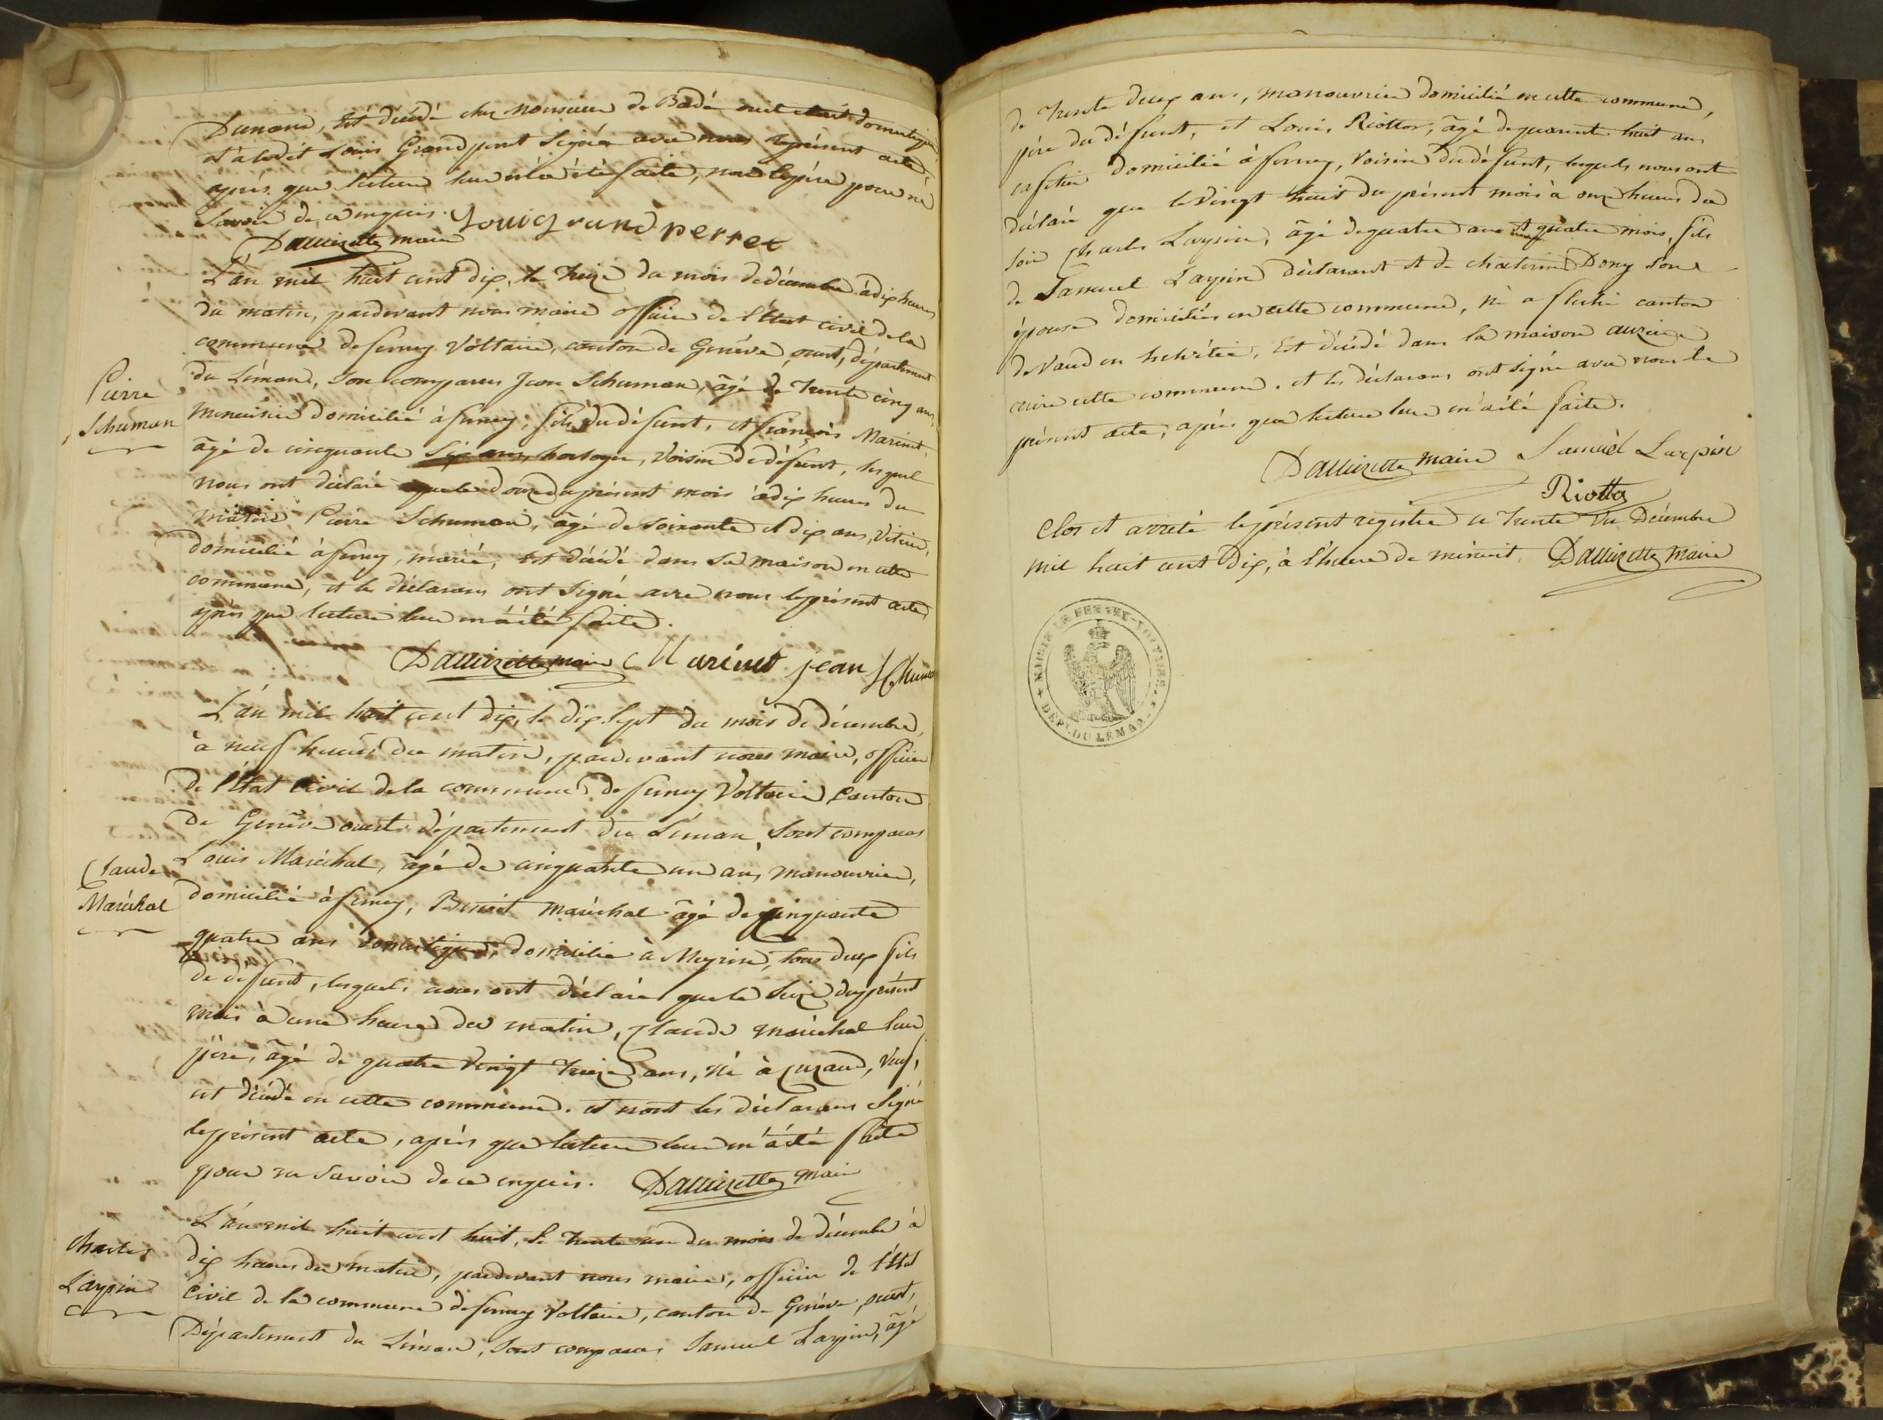 Dunand, Est décédé chez Monsieur de Badé
et a ledit Louis Grand perret Signé avec nous le présent acte,
après que lecture leur en a été faite, non le père pour ne
Savoir de ce enquis. Louis grand perret
Dauuizette maire
L'an mil huit cent dix, le treize du mois de décembre à dix heures
du matin, pardevant nous maire officier de l'État civil de la
commune de ferney Voltaire, canton de Genève ouest, département
du Léman, Sont comparus Jean Schuman, âgé de trente cinq ans,
Pierre
Schuman
menuisier domicilié à ferney, fils du défunt, et françois Marinet,
âgé de cinquante Six ans, horloger, Voisin de défunt, lesquels
nous ont déclaré que le douze du présent mois à dix heures du
matin Pierre Schuman, âgé de soixante et dix ans,
domicilié à ferney, marié, Est décédé dans Sa maison en cette
commune, et les déclarans ont Signé avec nous le présent acte
après que lecture leur en a été faite.
Dauuizette maire Marinet jean Schuman
L'an mil huit cent dix, le dix Sept du mois de décembre,
à neuf heures du matin, pardevant nous maire, officier
de l'État Civil de la commune de ferney Voltaire, Canton
de Genève ouest département du Léman, Sont comparus
Claude
Maréchal
Louis Maréchal, âgé de cinquante un ans, manouvrier,
domicilié à ferney, Benoit Maréchal âgé de cinquante
quatre ans domestique, domicilié à Meyrin, tous deux fils
de défunt, lesquels nous ont déclaré que le Seize du présent
mois à une heure du matin, Claude Maréchal leur
père, âgé de quatre Vingt treize ans, né à Cuzaud, Veuf,
est décédé en cette commune. et n'ont les déclarans Signé
le présent acte, après que lecture leur en a été faite
pour ne Savoir de ce enquis. Dauuizette maire
Charles
Larpin
L'an mil huit cent huit, le trente un du mois de décembre à
dix heures du matin, pardevant nous maire, officier de l'État
Civil de la commune de ferney Voltaire, canton de Genève ouest,
Département du Léman, Sont comparus Samuel Larpin, âgé
de trente deux ans, manouvrier domicilié en cette commune,
père du défunt, et Louis Riottor, âgé de quarante huit ans
cafetier domicilié à ferney, Voisin du défunt, lesquels nous ont
déclaré que le Vingt huit du présent mois à onze heures du
Soir Charles Larpin, âgé de quatre ans et quatre mois, fils
de Samuel Larpin déclarant et de Chaterine Dony Son
épouse domiciliés en cette commune, né a canton
de Vaud en helvétie, Est décédé dans la maison
cette commune. et les déclarans ont Signé avec nous le
présent acte, après que lecture leur en a été faite.
Dauuizette maire Samuel Larpin
Riottor
Clos et arreté le présent registre ce trente un Décembre
mil huit cent dix, à l'heure de minuit. Dauuizette maire
MAIRIE DE FERNEY-VOLTAIRE
DEPT. DU LEMAN